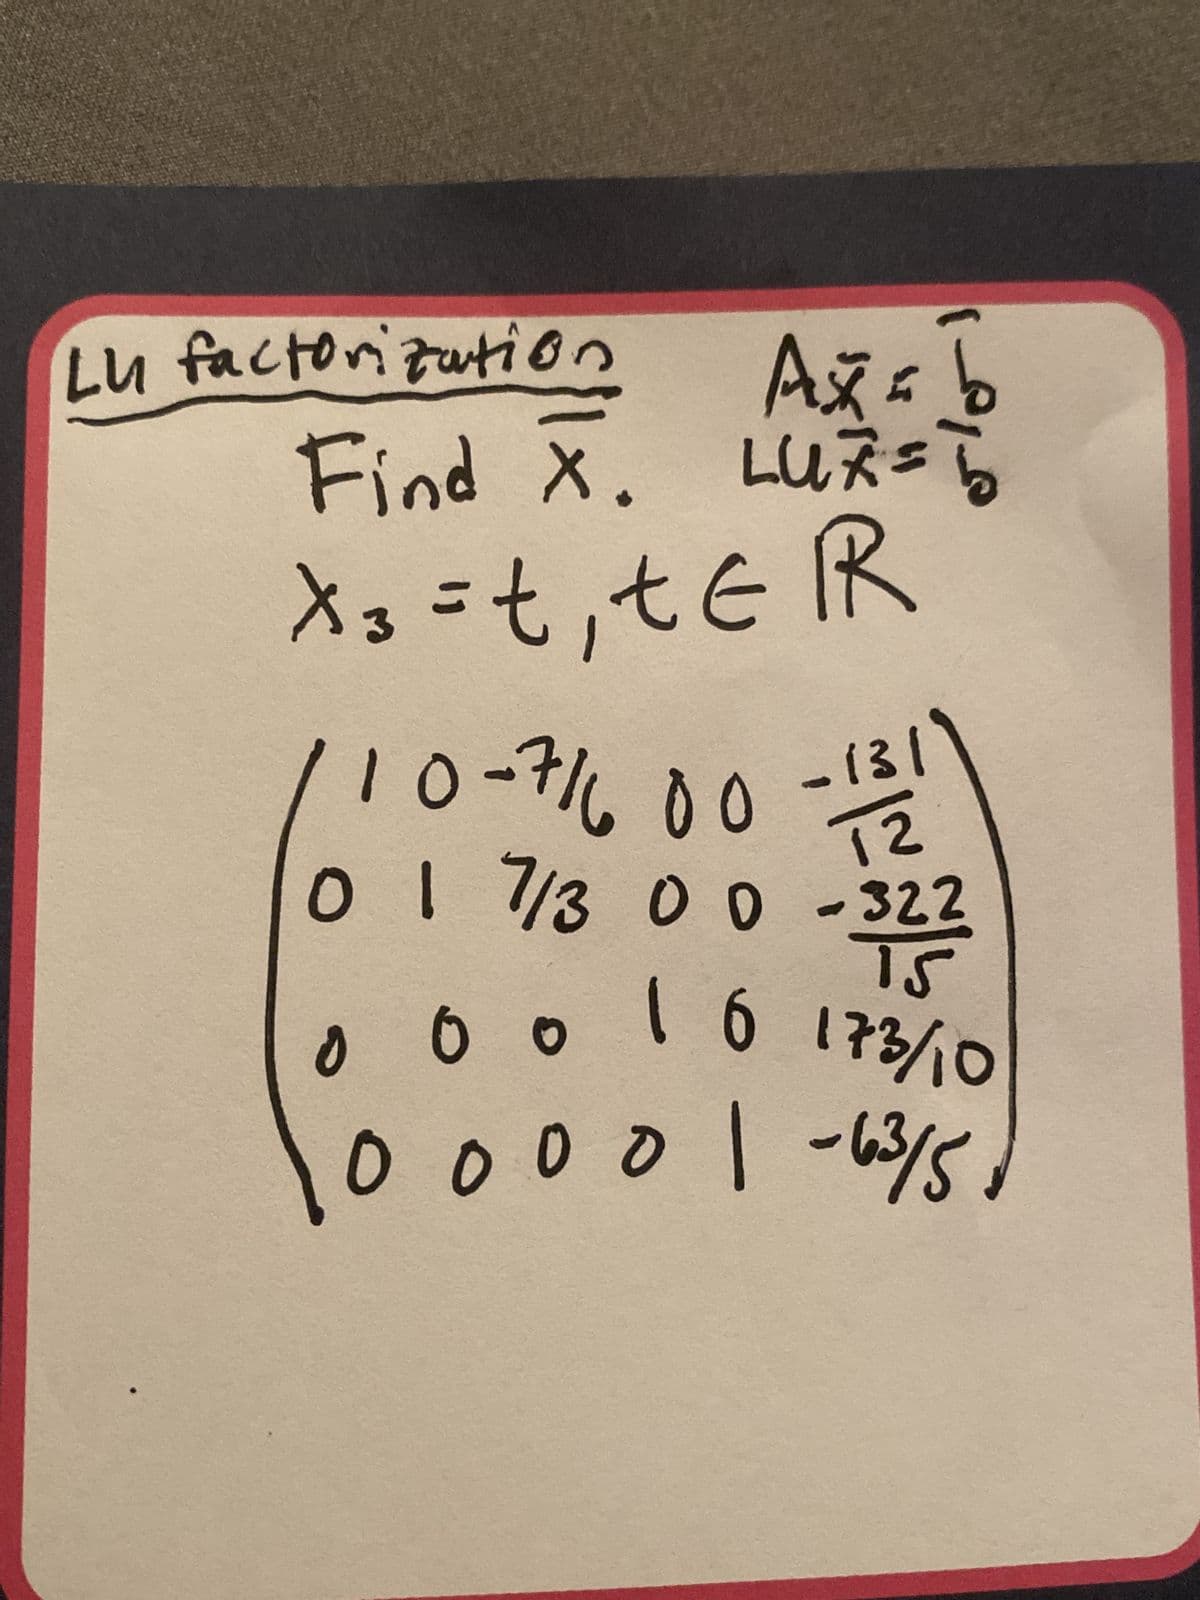 LU factorization
Ax̄ = b̄
Find x̄. LUx̄ = b̄
x₃ = t, t ∈ ℝ
1 0 -7/6 0 0 -131/12
0 1 7/3 0 0 -322/15
0 0 0 1 0 173/10
0 0 0 0 1 -63/5